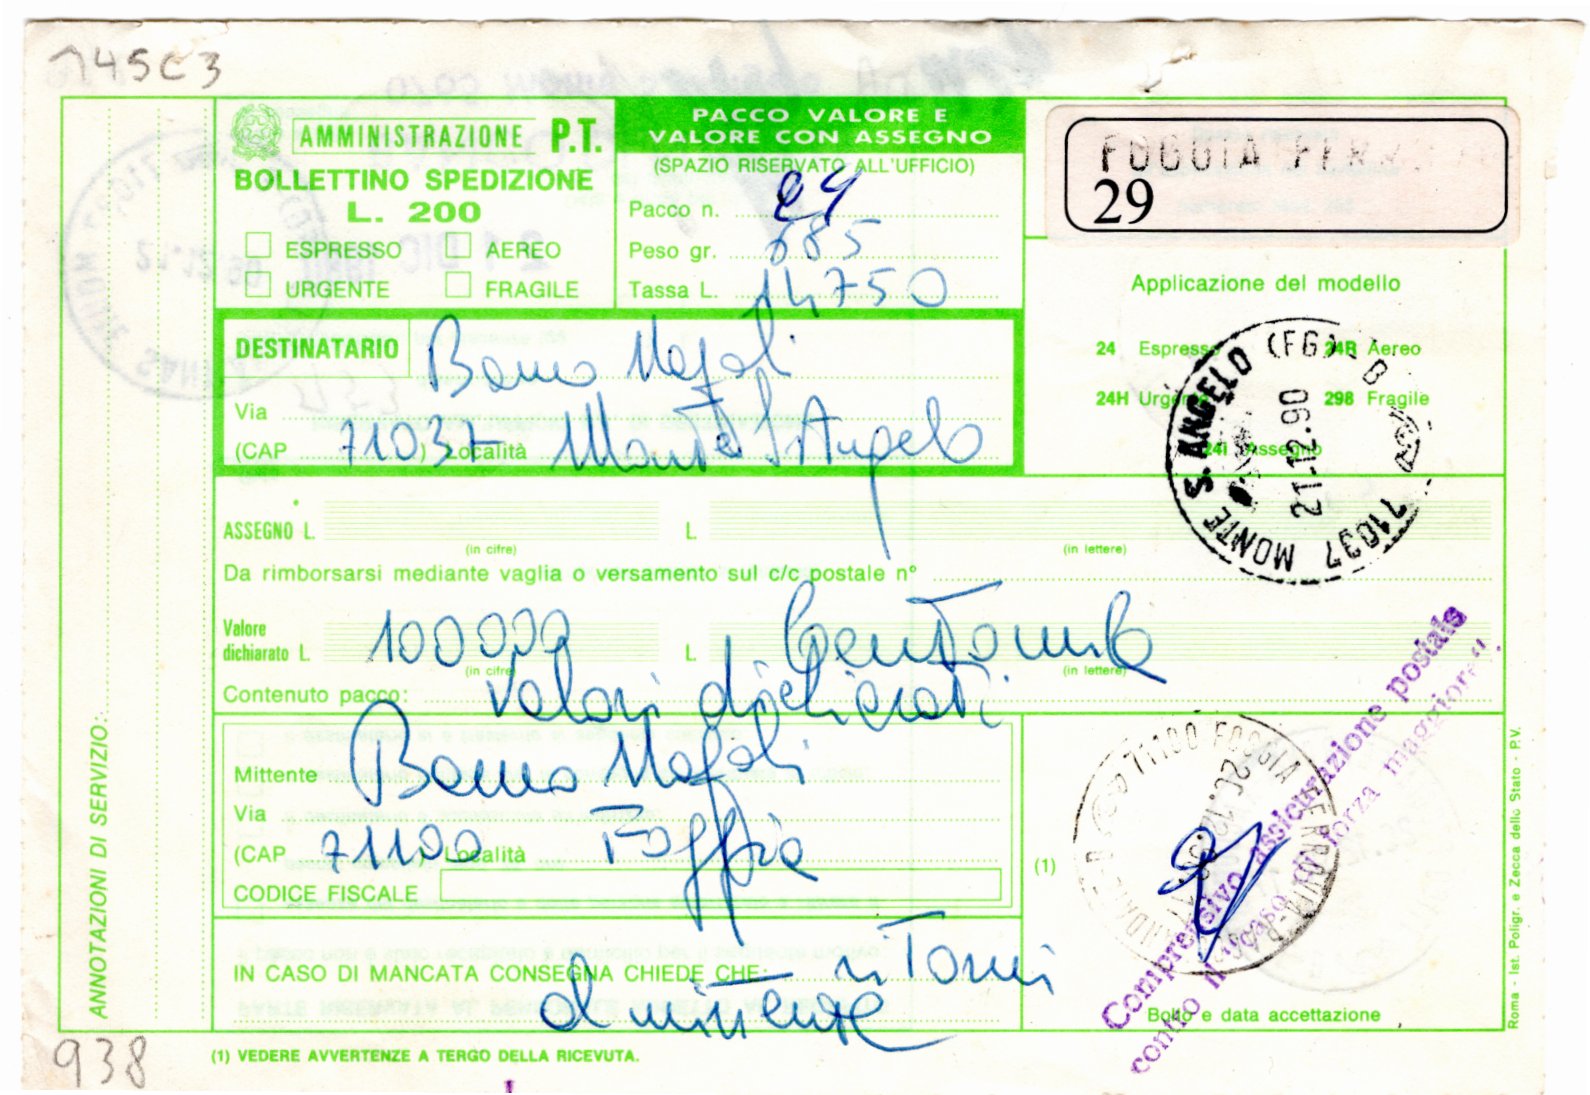 745C3
AMMINISTRAZIONE P.T.
BOLLETTINO SPEDIZIONE
L. 200
ESPRESSO AEREO
URGENTE FRAGILE
PACCO VALORE E
VALORE CON ASSEGNO
(SPAZIO RISERVATO ALL'UFFICIO)
Pacco n. 29
Peso gr. 685
Tassa L. 14750
FOGGIA FERR.
29
Applicazione del modello
24 Espresso 24R Aereo
24H Urgente 298 Fragile
24I Assegno
71037 MONTE S. ANGELO (FG)
21.12.90
DESTINATARIO Banco Napoli
Via
(CAP 71037) Località Monte S'Angelo
ASSEGNO L. L.
(in cifre) (in lettere)
Da rimborsarsi mediante vaglia o versamento sul c/c postale n°
Valore
dichiarato L. 100000 L. Centomila
(in cifre) (in lettere)
Contenuto pacco: Valori dichiarati
Mittente Banco Napoli
Via
(CAP 71100) Località Foggia
CODICE FISCALE
IN CASO DI MANCATA CONSEGNA CHIEDE CHE: ritorni
al mittente
(1)
71100 FOGGIA FERROVIA
Comprensivo assicurazione postale
contro il "caso di forza maggiore"
Bollo e data accettazione
ANNOTAZIONI DI SERVIZIO:
Roma - Ist. Poligr. e Zecca dello Stato - P.V.
938
(1) VEDERE AVVERTENZE A TERGO DELLA RICEVUTA.